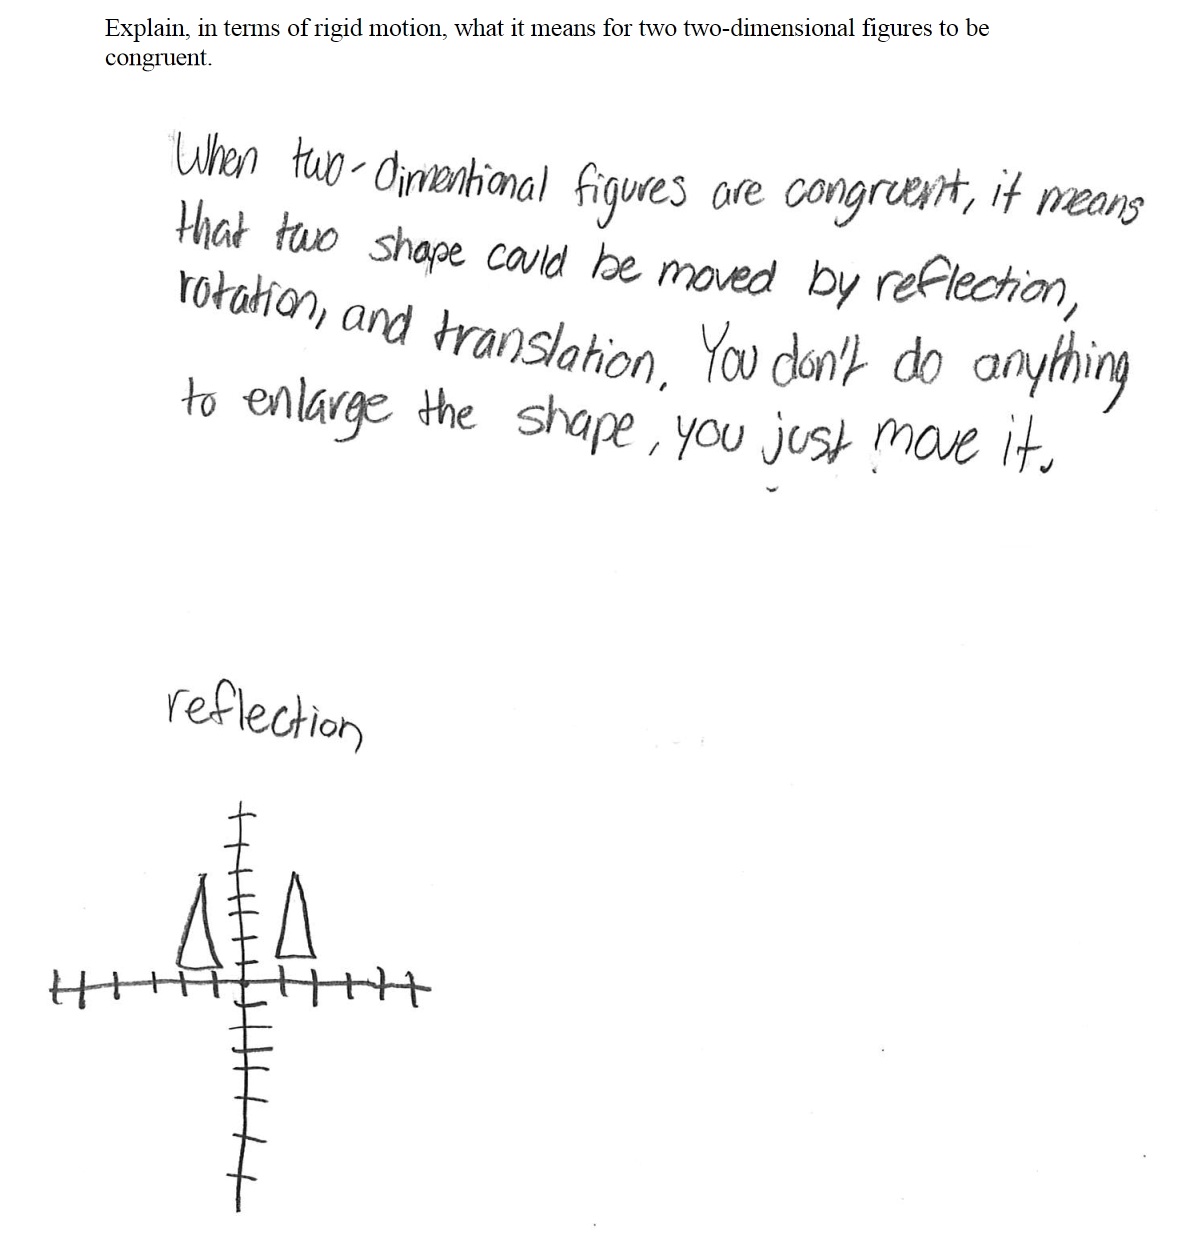 Explain, in terms of rigid motion, what it means for two two-dimensional figures to be
congruent.
When two-dimentional figures are congruent, it means
that two shape could be moved by reflection,
rotation, and translation. You don't do anything
to enlarge the shape, you just move it.
reflection